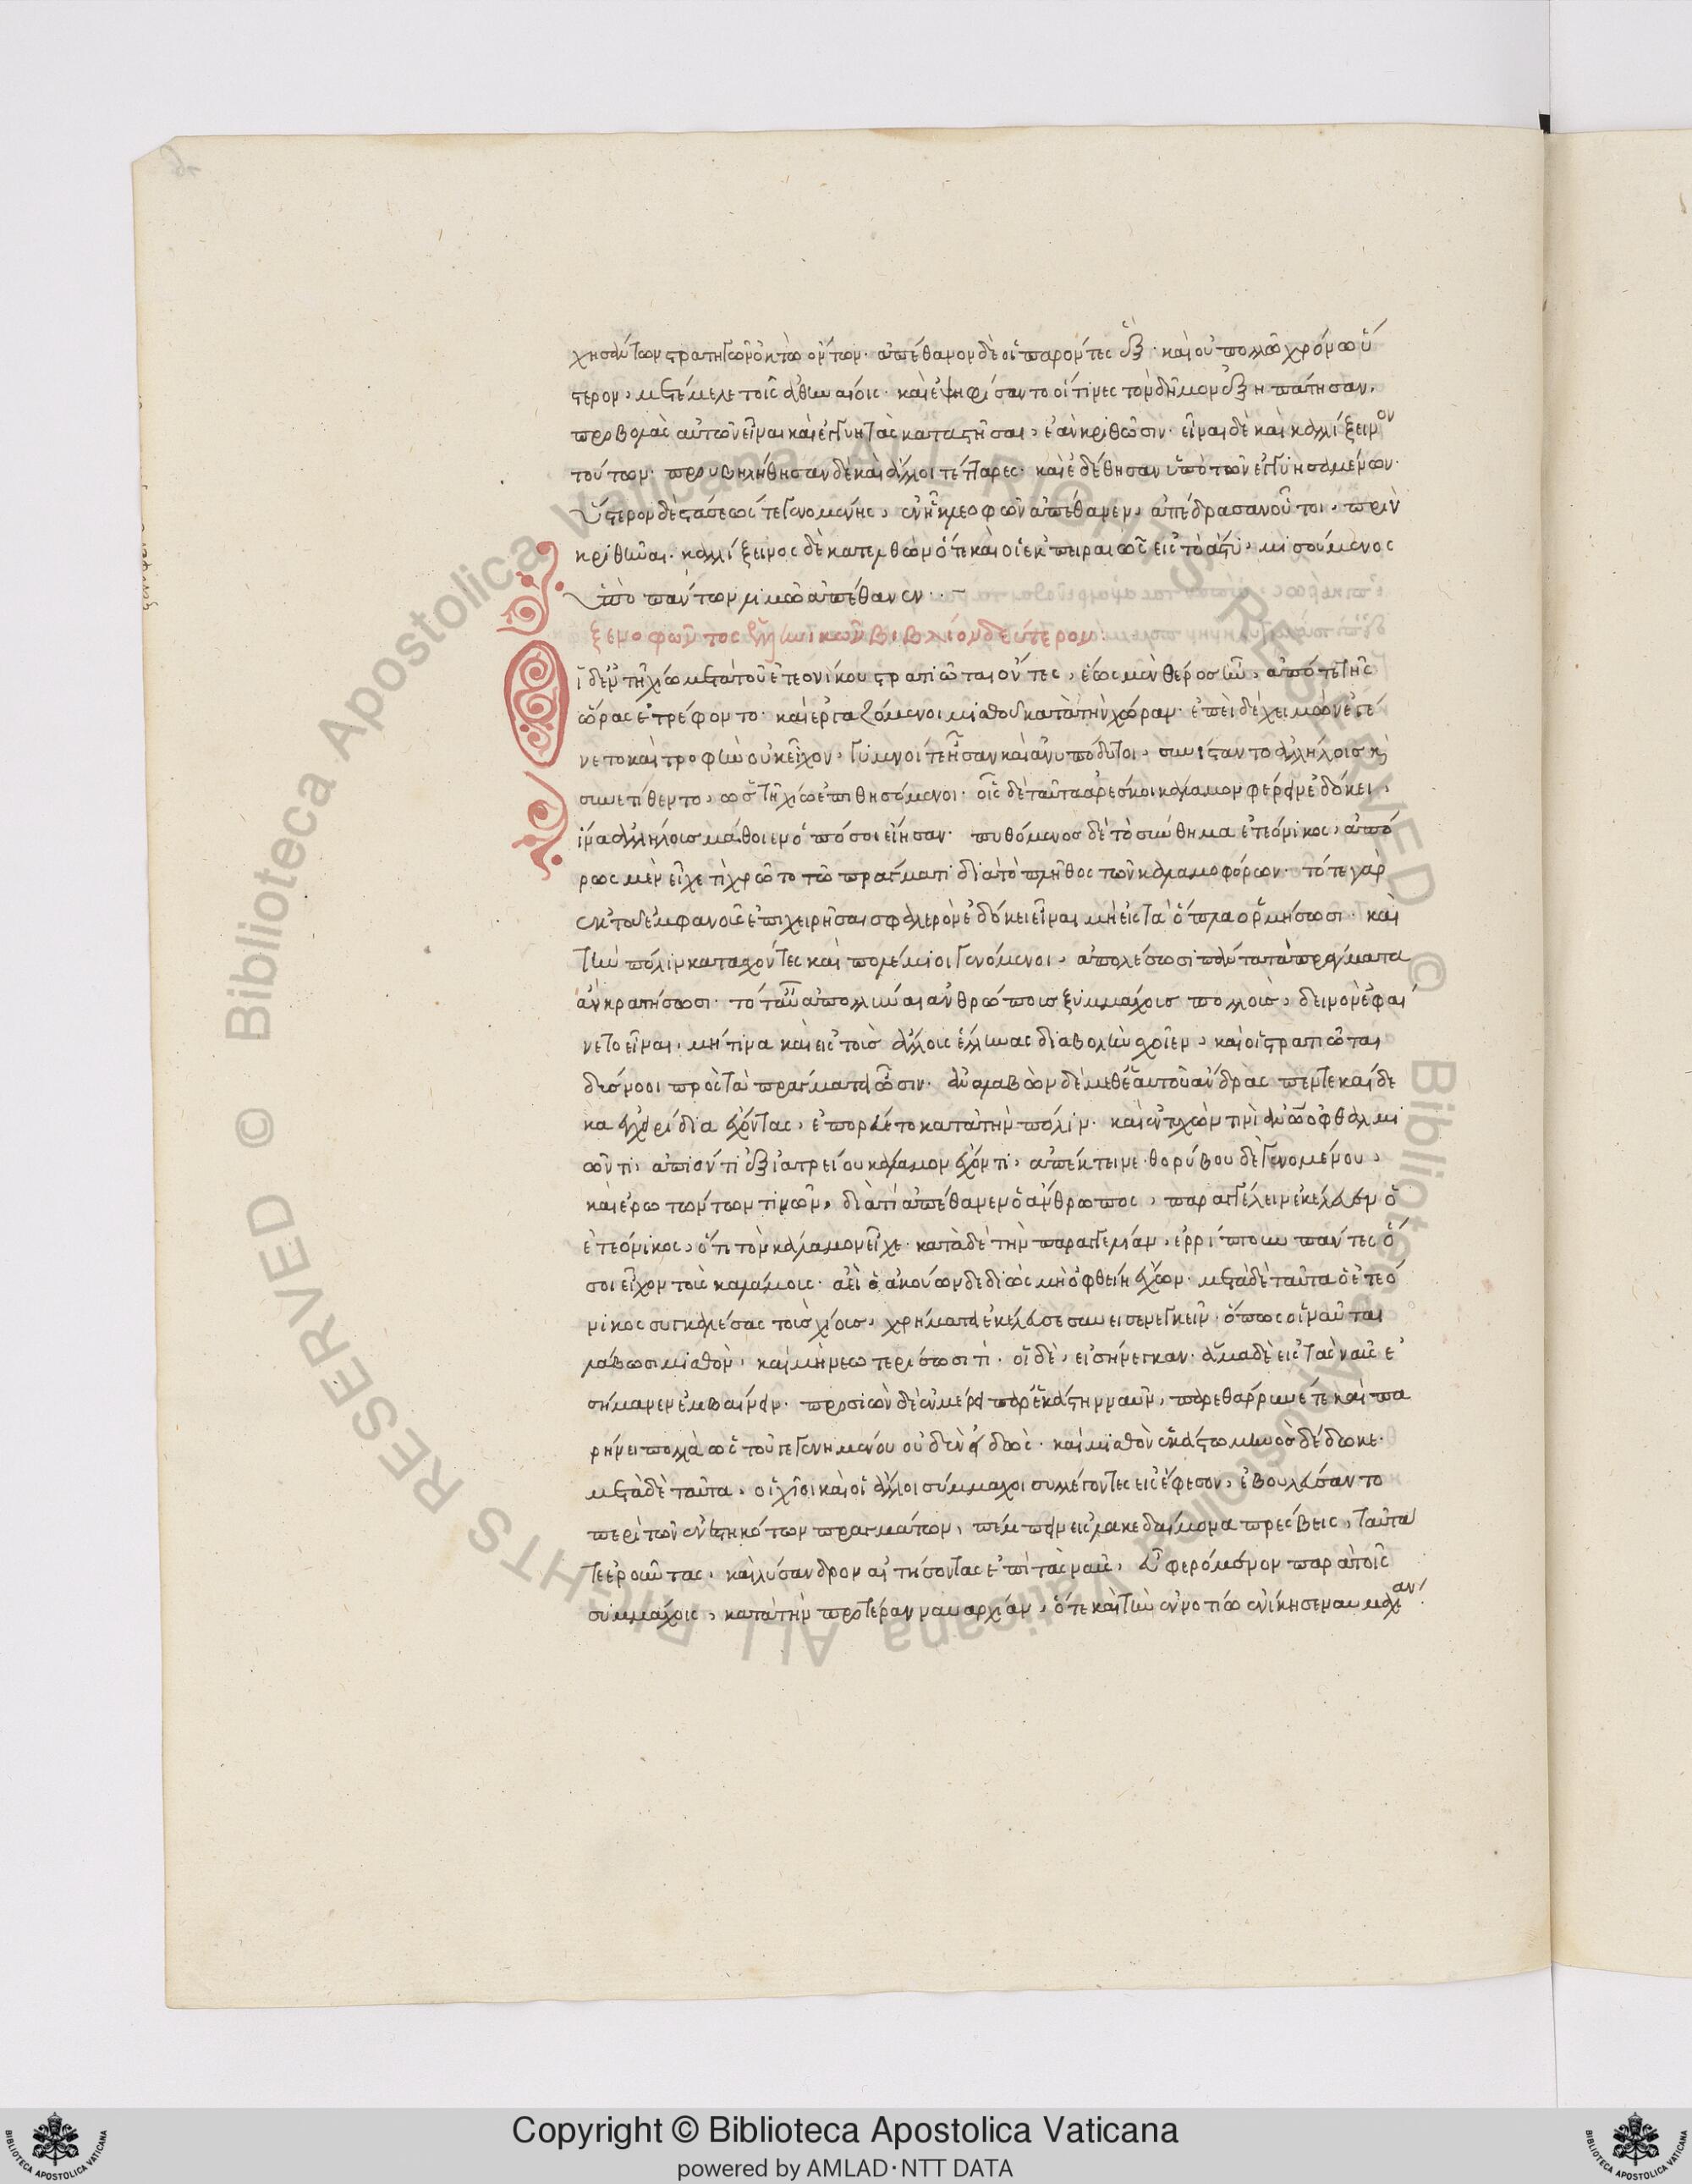 χησάντων στρατηγῶν ὀκτὼ ὄντων· ἀπέθανον δὲ οἱ παρόντες ἕξ· καὶ οὐ πολλῶ χρόνω ὕ
στερον, μετέμελε τοῖς ἀθηναίοις· καὶ ἐψηφίσαντο οἵτινες τὸν δῆμον ἐξηπάτησαν,
προβολὰς αὐτῶν εἶναι καὶ ἐγγυητὰς καταστῆσαι, ἐὰν κριθῶσιν· εἶναι δὲ καὶ καλλίξεινον
τούτων· προυβλήθησαν δὲ καὶ ἄλλοι τέτταρες· καὶ ἐδέθησαν ὑπὸ τῶν ἐγγυησαμένων·
ὕστερον δὲ στάσεώς τε γενομένης, ἐν ᾗ κλεοφῶν ἀπέθανεν, ἀπέδρασαν οὗτοι, πρὶν
κριθῆναι· καλλίξεινος δὲ κατελθὼν ὅτε καὶ οἱ ἐκ πειραιῶς εἰς τὸ ἄστυ, μισούμενος
ὑπὸ πάντων λιμῶ ἀπέθανεν·
ξενοφῶντος ἑλληνικῶν βιβλίον δεύτερον:
Οἱ δ' ἐν τῆ χίω μετὰ τοῦ ἐτεονίκου στρατιῶται ὄντες, ἕως μὲν θέρος ἦν, ἀπό τε τῆς
ὥρας ἐτρέφοντο· καὶ ἐργαζόμενοι μισθοῦ κατὰ τὴν χώραν· ἐπεὶ δὲ χειμὼν ἐγέ
νετο καὶ τροφὴν οὐκ εἶχον, γυμνοί τε ἦσαν καὶ ἀνυπόδητοι, συνίσταντο ἀλλήλοις καὶ
συνετίθεντο, ὡς τῆ χίω ἐπιθησόμενοι· οἷς δὲ ταῦτα ἀρέσκοι κάλαμον φέρειν ἐδόκει,
ἵνα ἀλλήλοις μάθοιεν ὁπόσοι εἴησαν· πυθόμενος δὲ τὸ σύνθημα ἐτεόνικος, ἀπό
ρως μὲν εἶχε τί χρῶτο τῶ πράγματι διὰ τὸ πλῆθος τῶν καλαμοφόρων· τό τε γὰρ
ἐκ τοῦ ἐμφανοῦς ἐπιχειρῆσαι σφαλερὸν ἐδόκει εἶναι μὴ εἰς τὰ ὅπλα ὁρμήσωσι· καὶ
τὴν πόλιν κατασχόντες καὶ πολέμιοι γενόμενοι, ἀπολέσωσι πάντα τὰ πράγματα
ἂν κρατήσωσι· τό τ' αὖ ἀπολλύναι ἀνθρώπους ξυμμάχους πολλοὺς, δεινὸν ἐφαί
νετο εἶναι, μή τινα καὶ εἰς τοὺς ἄλλους ἕλληνας διαβολὴν σχοῖεν, καὶ οἱ στρατιῶται
δύσνοοι πρὸς τὰ πράγματα ὦσιν· ἀναλαβὼν δὲ μεθ' ἑαυτοῦ ἄνδρας πεντεκαίδε
κα ἐγχειρίδια ἔχοντας, ἐπορεύετο κατὰ τὴν πόλιν· καὶ ἐντυχών τινι ἀνθρώπω ὀφθαλμι
ῶντι, ἀπιόντι ἐξ ἰατρείου κάλαμον ἔχοντι, ἀπέκτεινε· θορύβου δὲ γενομένου,
καὶ ἐρωτώντων τινῶν, διὰ τί ἀπέθανεν ὁ ἄνθρωπος, παραγγέλλειν ἐκέλευεν ὁ
ἐτεόνικος, ὅτι τὸν κάλαμον εἶχε· κατὰ δὲ τὴν παραγγελίαν, ἐρρίπτουν πάντες ὅ
σοι εἶχον τοὺς καλάμους· ἀεὶ ὁ ἀκούων δεδιὼς μὴ ὀφθείη ἔχων· μετὰ δὲ ταῦτα ὁ ἐτεό
νικος συγκαλέσας τοὺς χίους, χρήματα ἐκέλευσε συνεισενεγκεῖν· ὅπως οἱ ναῦται
λάβωσι μισθὸν, καὶ μὴ νεωτερίσωσί τι· οἱ δὲ, εἰσήνεγκαν· ἅμα δὲ εἰς τὰς ναῦς ἐ
σήμανεν ἐμβαίνειν· προσιὼν δὲ ἐν μέρει παρ' ἑκάστην ναῦν, παρεθάρρυνέ τε καὶ πα
ρήνει πολλὰ ὡς τοῦ γεγενημένου οὐδὲν εἰδὼς· καὶ μισθὸν ἑκάστω μηνὸς δέδωκε·
μετὰ δὲ ταῦτα, οἱ χῖοι καὶ οἱ ἄλλοι σύμμαχοι συλλεγέντες εἰς ἔφεσον, ἐβουλεύσαντο
περὶ τῶν ἐνεστηκότων πραγμάτων, πέμπειν εἰς λακεδαίμονα πρέσβεις, ταῦτά
τε ἐροῦντας, καὶ λύσανδρον αἰτήσοντας ἐπὶ τὰς ναῦς, εὖ φερόμενον παρὰ τοῖς
συμμάχοις, κατὰ τὴν προτέραν ναυαρχίαν, ὅτε καὶ τὴν ἐν νοτίω ἐνίκησε ναυμαχίαν·